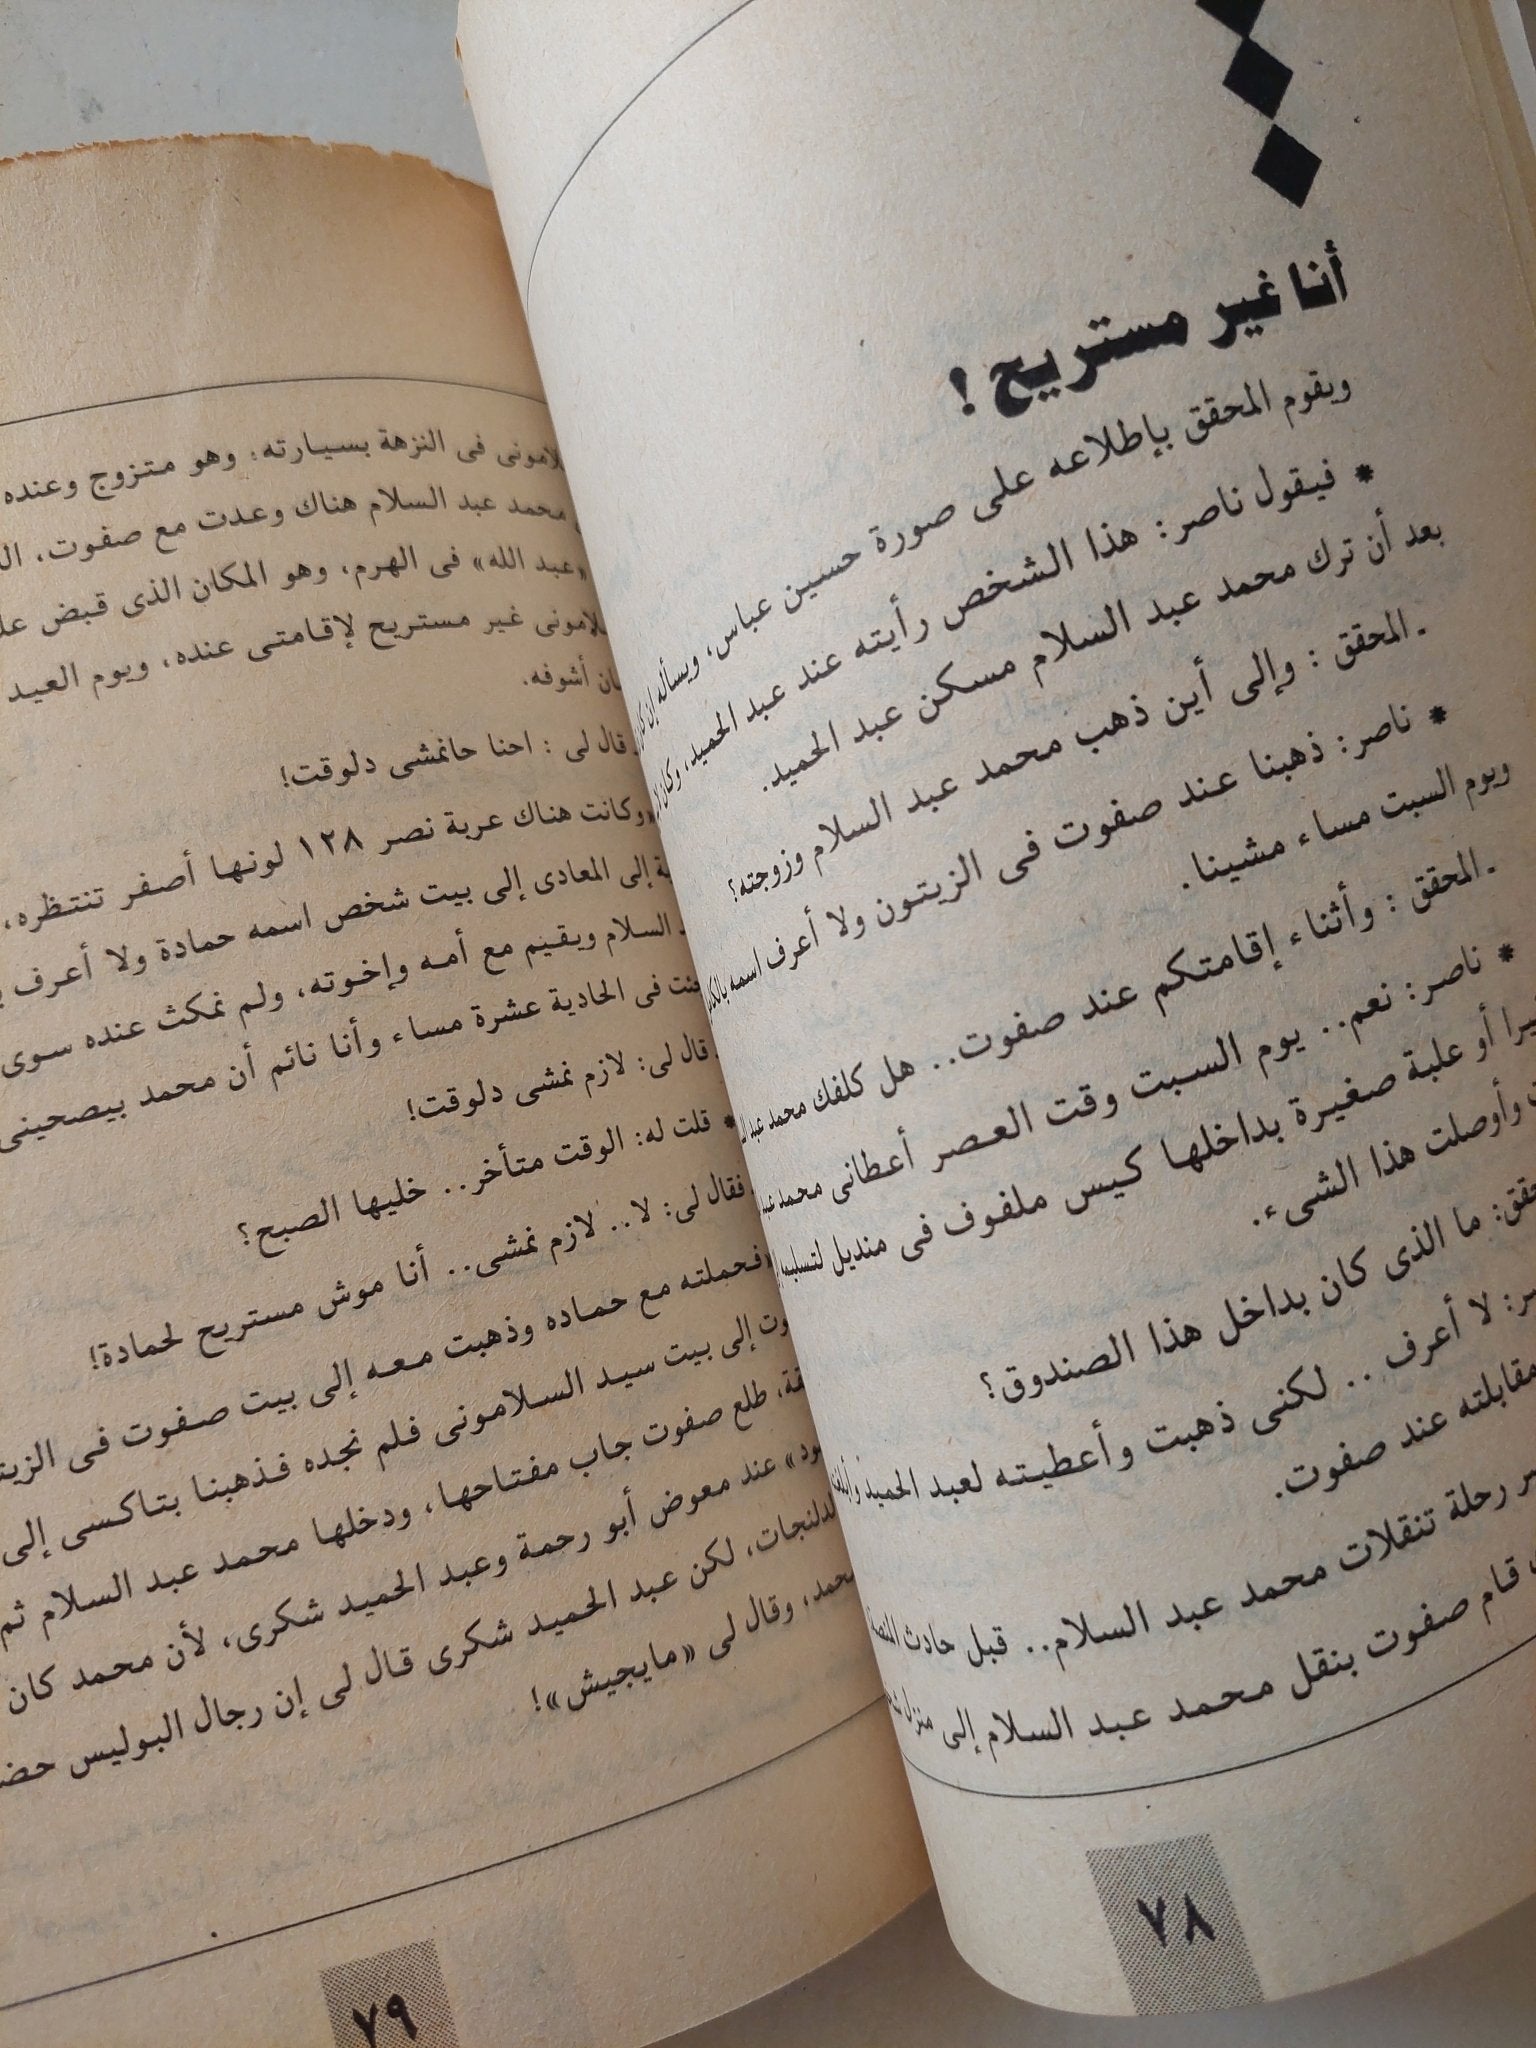 أنا غير مستريح !
ويقوم المحقق بإطلاعه على صورة حسين عباس، ويسأله إن كان
* فيقول ناصر: هذا الشخص رأيته عند عبد الحميد، وكان
بعد أن ترك محمد عبد السلام مسكن عبد الحميد.
- المحقق : وإلى أين ذهب محمد عبد السلام وزوجته؟
* ناصر: ذهبنا عند صفوت فى الزيتون ولا أعرف اسمه
ويوم السبت مساء مشينا.
- المحقق : وأثناء إقامتكم عند صفوت.. هل كلفك محمد عبد
* ناصر: نعم.. يوم السبت وقت العصر أعطانى محمد عبد
أو علبة صغيرة بداخلها كيس ملفوف فى منديل
وأوصلت هذا الشىء.
ما الذى كان بداخل هذا الصندوق؟
لا أعرف .. لكنى ذهبت وأعطيته لعبد الحميد
مقابلته عند صفوت.
رحلة تنقلات محمد عبد السلام.. قبل حادث المنصة
قام صفوت بنقل محمد عبد السلام إلى منزل
٧٨
فى النزهة بسيارته، وهو متزوج وعنده
محمد عبد السلام هناك وعدت مع صفوت،
«عبد الله» فى الهرم، وهو المكان الذى قبض
غير مستريح لإقامتى عنده، ويوم العيد
أشوفه.
قال لى : احنا حانمشى دلوقت!
«وكانت هناك عربة نصر ١٢٨ لونها أصفر تنتظره،
إلى المعادى إلى بيت شخص اسمه حمادة ولا أعرف
السلام ويقيم مع أمه وإخوته، ولم نمكث عنده سوى
فى الحادية عشرة مساء وأنا نائم أن محمد بيصحينى
قال لى: لازم نمشى دلوقت!
* قلت له: الوقت متأخر.. خليها الصبح؟
فقال لى: لا.. لازم نمشى.. أنا موش مستريح لحمادة!
«فحملته مع حماده وذهبت معه إلى بيت صفوت فى
إلى بيت سيد السلامونى فلم نجده فذهبنا بتاكسى إلى
طلع صفوت جاب مفتاحها، ودخلها محمد عبد السلام ثم
عند معوض أبو رحمة وعبد الحميد شكرى، لأن محمد كان
الدلنجات، لكن عبد الحميد شكرى قال لى إن رجال البوليس
محمد، وقال لى «مايجيش»!
٧٩